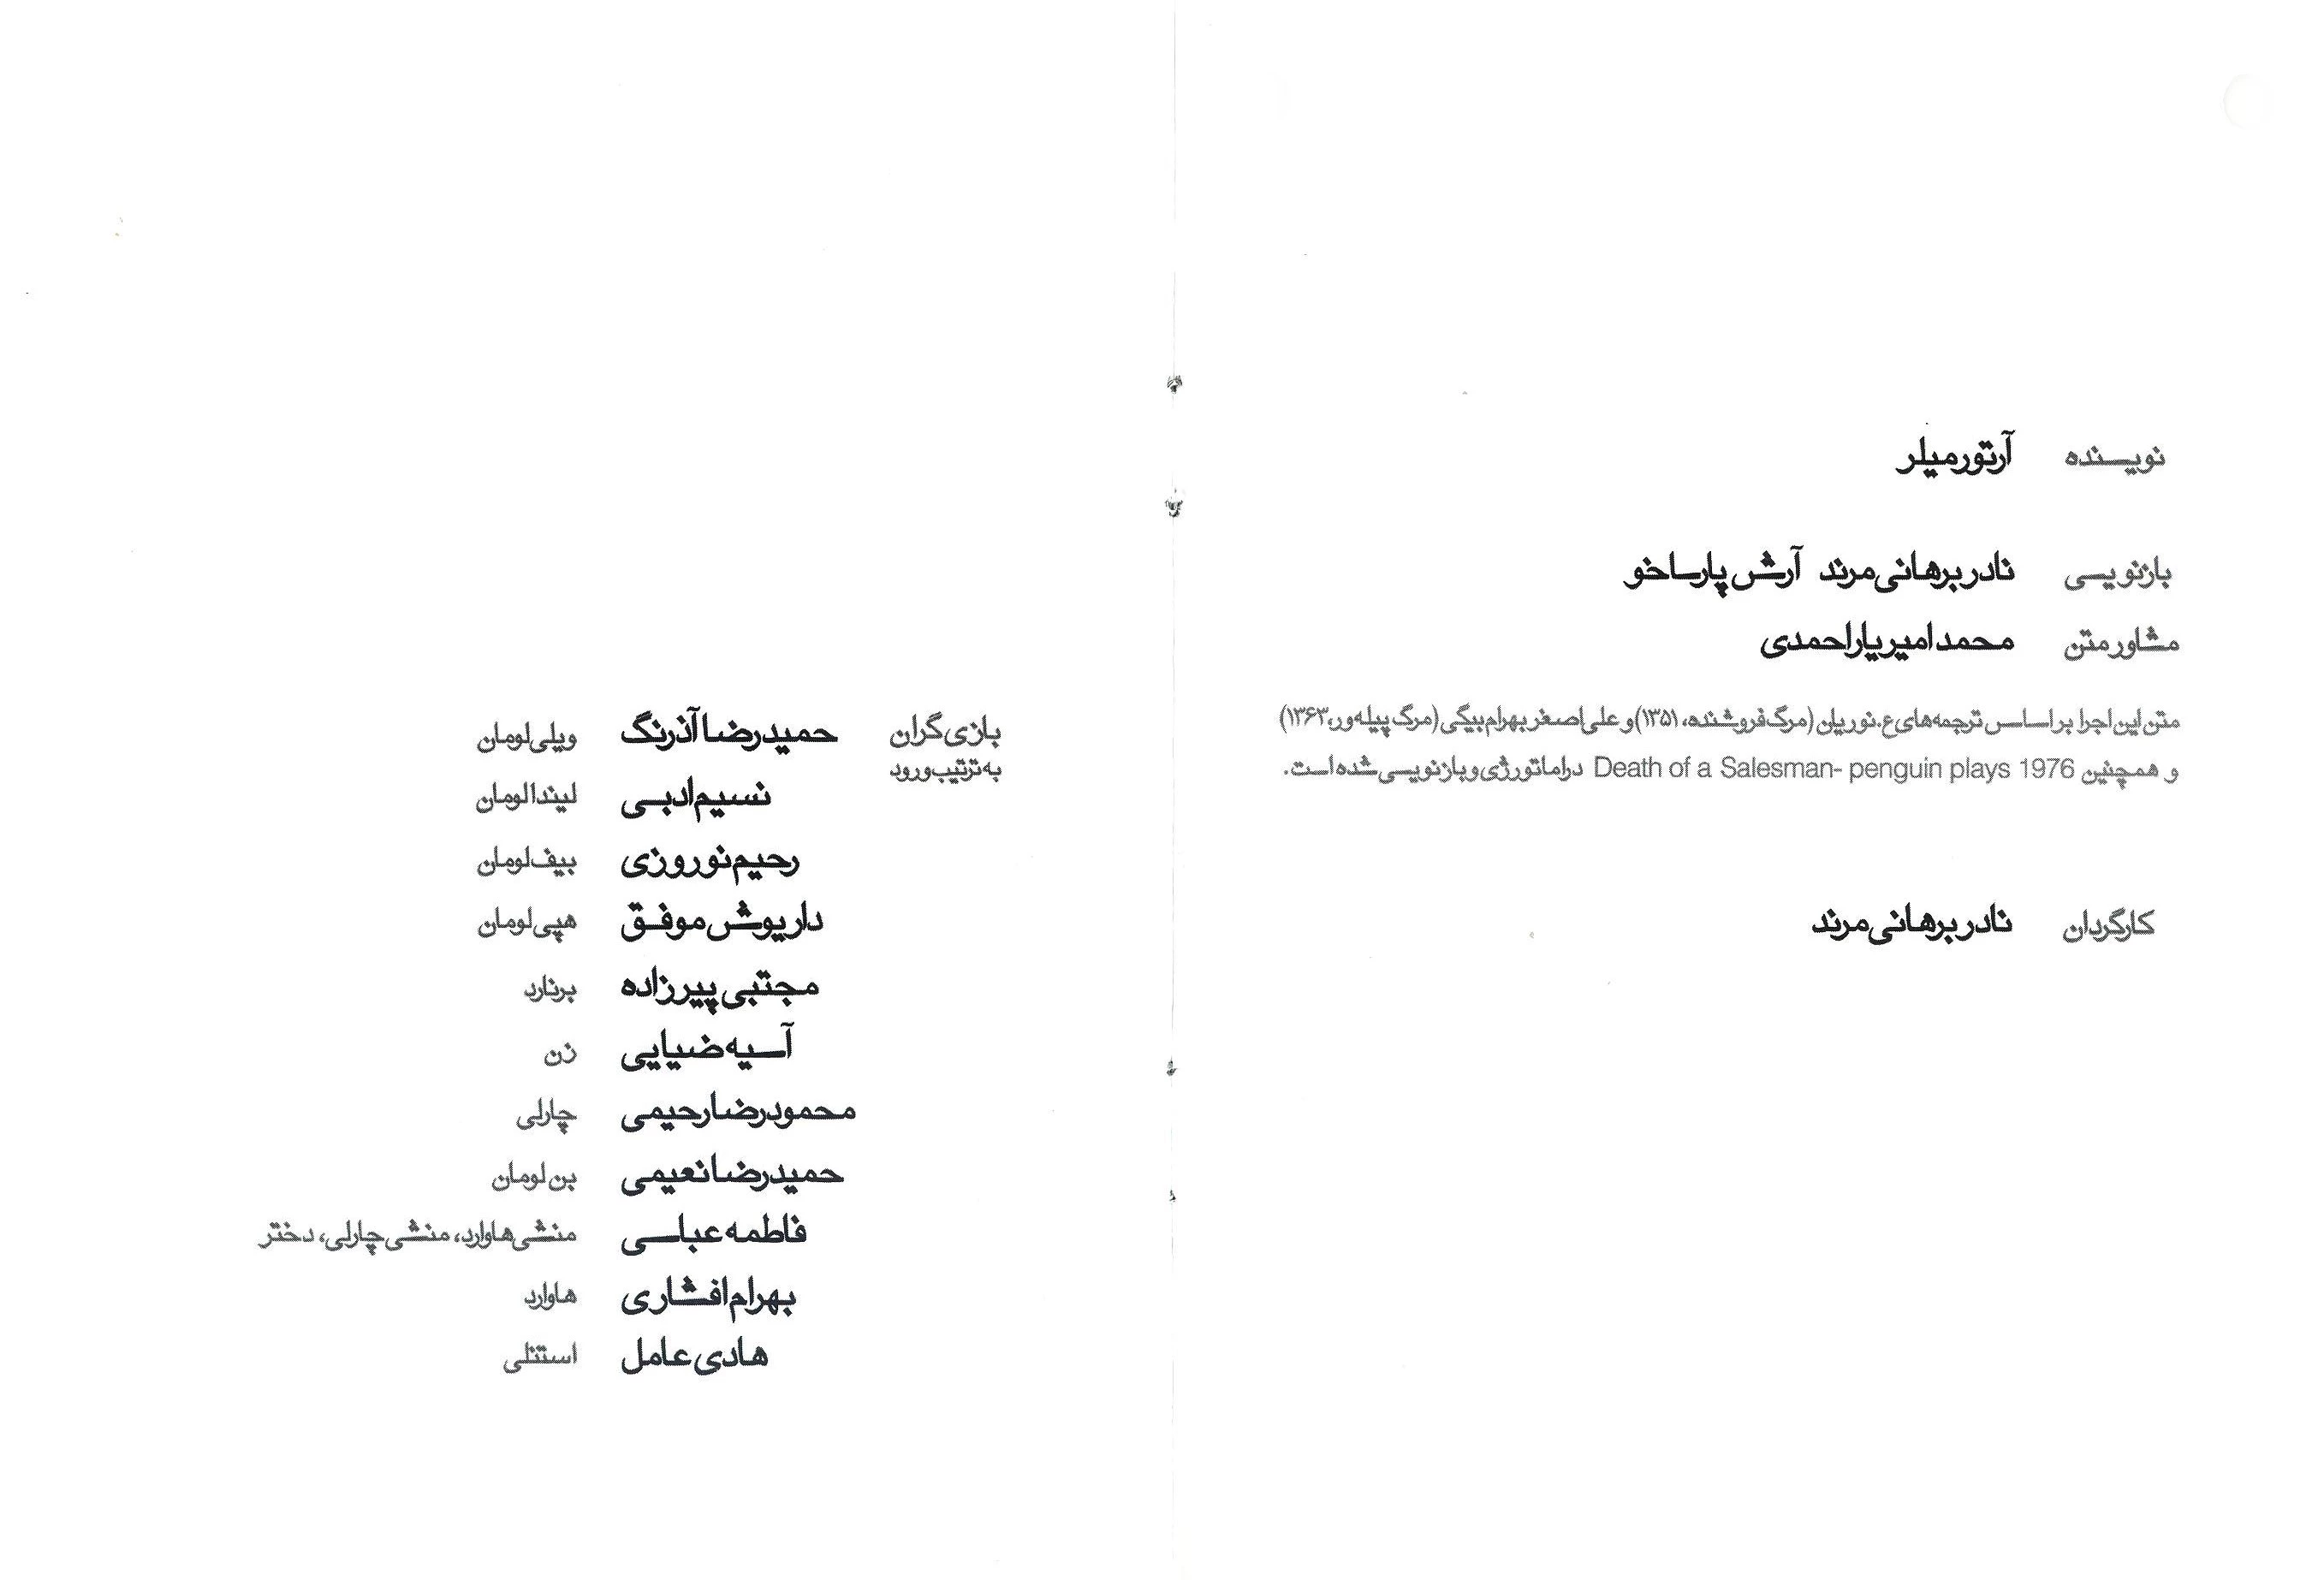 نویسنده آرتور میلر
بازنویسی نادر برهانی‌مرند آرش پارساخو
مشاور متن محمد امیریاراحمدی
متن این اجرا بر اساس ترجمه‌های ع.نوریان (مرگ فروشنده، ۱۳۵۱) و علی‌اصغر بهرام‌بیگی (مرگ پیله‌ور، ۱۳۶۳)
و همچنین Death of a Salesman- penguin plays 1976 دراماتورژی و بازنویسی شده است.
کارگردان نادر برهانی‌مرند
بازی‌گران حمیدرضا آذرنگ ویلی لومان
به ترتیب ورود
نسیم ادبی لیندا لومان
رحیم نوروزی بیف لومان
داریوش موفق هپی لومان
مجتبی پیرزاده برنارد
آسیه ضیایی زن
محمودرضا رحیمی چارلی
حمیدرضا نعیمی بن لومان
فاطمه عباسی منشی هاوارد، منشی چارلی، دختر
بهرام افشاری هاوارد
هادی عامل استنلی